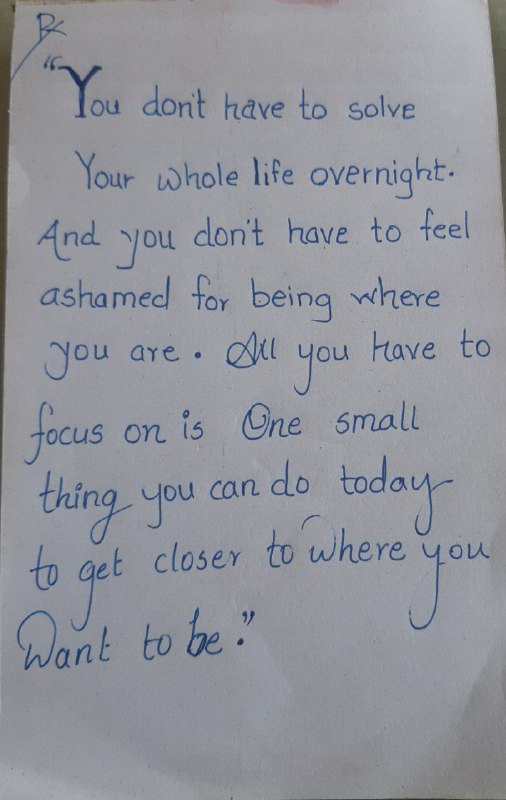 Rx
"You don't have to solve
Your whole life overnight.
And you don't have to feel
ashamed for being where
you are. All you have to
focus on is One small
thing you can do today
to get closer to where you
Want to be."